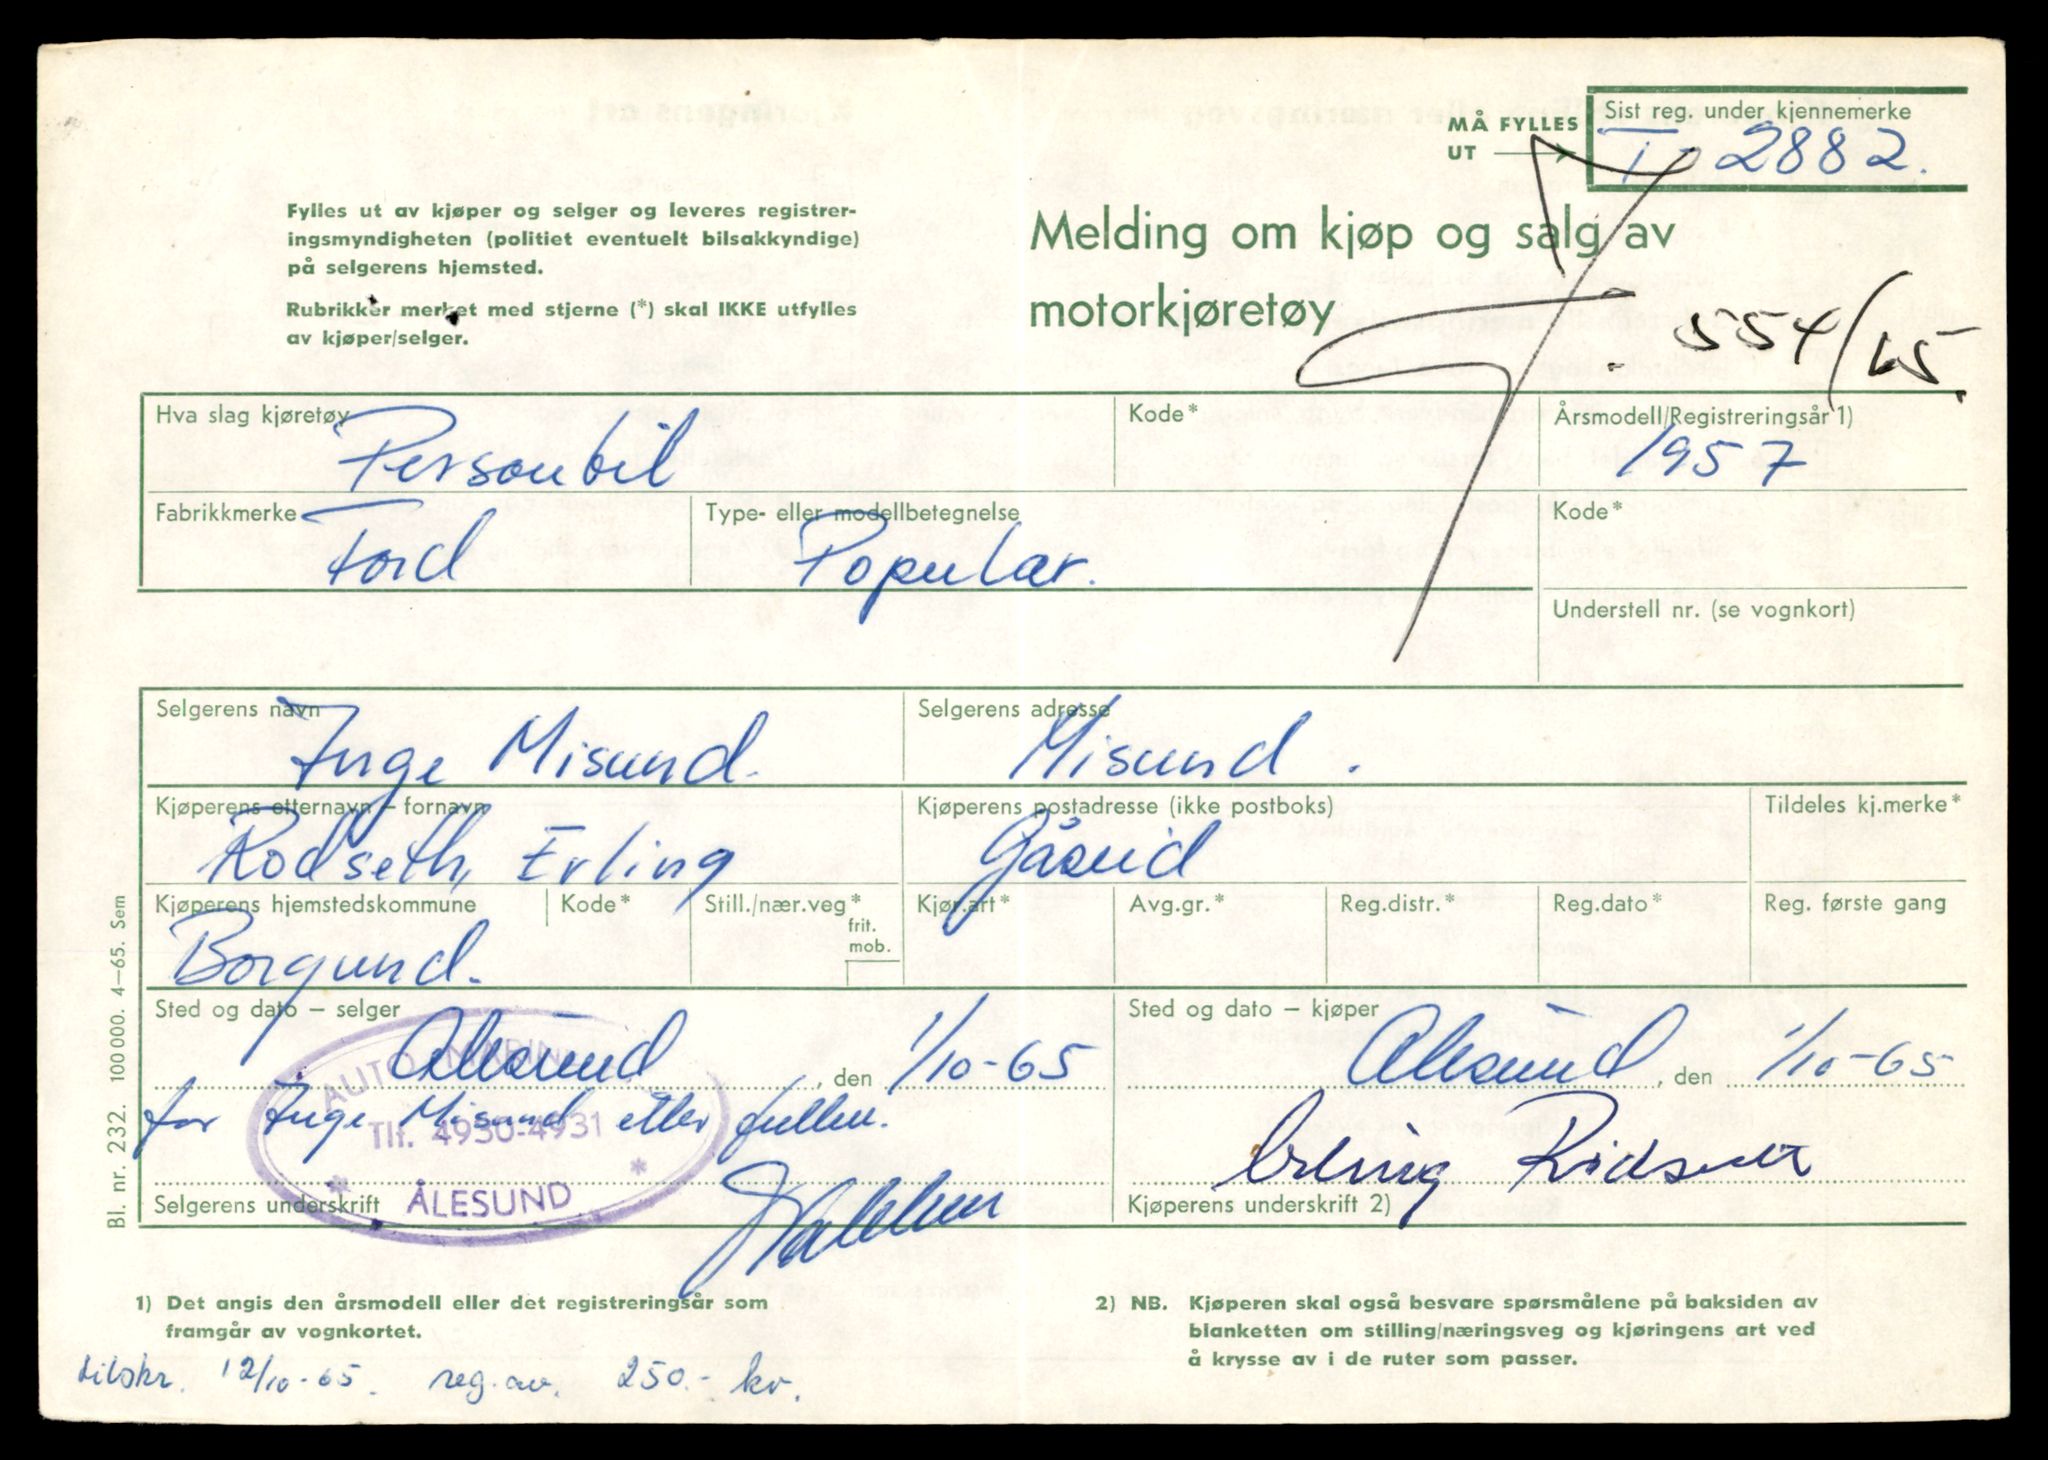 MÅ FYLLES UT
Sist reg. under kjennemerke
T- 2882.
Fylles ut av kjøper og selger og leveres registrer-
ingsmyndigheten (politiet eventuelt bilsakkyndige)
på selgerens hjemsted.
Rubrikker merket med stjerne (*) skal IKKE utfylles
av kjøper/selger.
Melding om kjøp og salg av
motorkjøretøy
554/65.
Hva slag kjøretøy
Personbil
Kode*
Årsmodell/Registreringsår 1)
1957
Fabrikkmerke
Ford
Type- eller modellbetegnelse
Popular.
Kode*
Understell nr. (se vognkort)
Selgerens navn
Inge Misund.
Selgerens adresse
Misund.
Kjøperens etternavn – fornavn
Rødseth, Erling
Kjøperens postadresse (ikke postboks)
Gåseid
Tildeles kj.merke*
Kjøperens hjemstedskommune
Borgund.
Kode*
Still./nær.veg*
frit.
mob.
Kjør.art*
Avg.gr.*
Reg.distr.*
Reg.dato*
Reg. første gang
Sted og dato – selger
Ålesund, den 1/10-65
for Inge Misund etter fullm.
Selgerens underskrift
AUTO
Tlf. 4930-4931
* ÅLESUND *
Sted og dato – kjøper
Ålesund, den 1/10-65
Erling Rødseth
Kjøperens underskrift 2)
Bl. nr. 232. 100 000. 4–65. Sem
1) Det angis den årsmodell eller det registreringsår som
framgår av vognkortet.
2) NB. Kjøperen skal også besvare spørsmålene på baksiden av
blanketten om stilling/næringsveg og kjøringens art ved
å krysse av i de ruter som passer.
tilskr. 12/10-65. reg.av. 250.- kr.